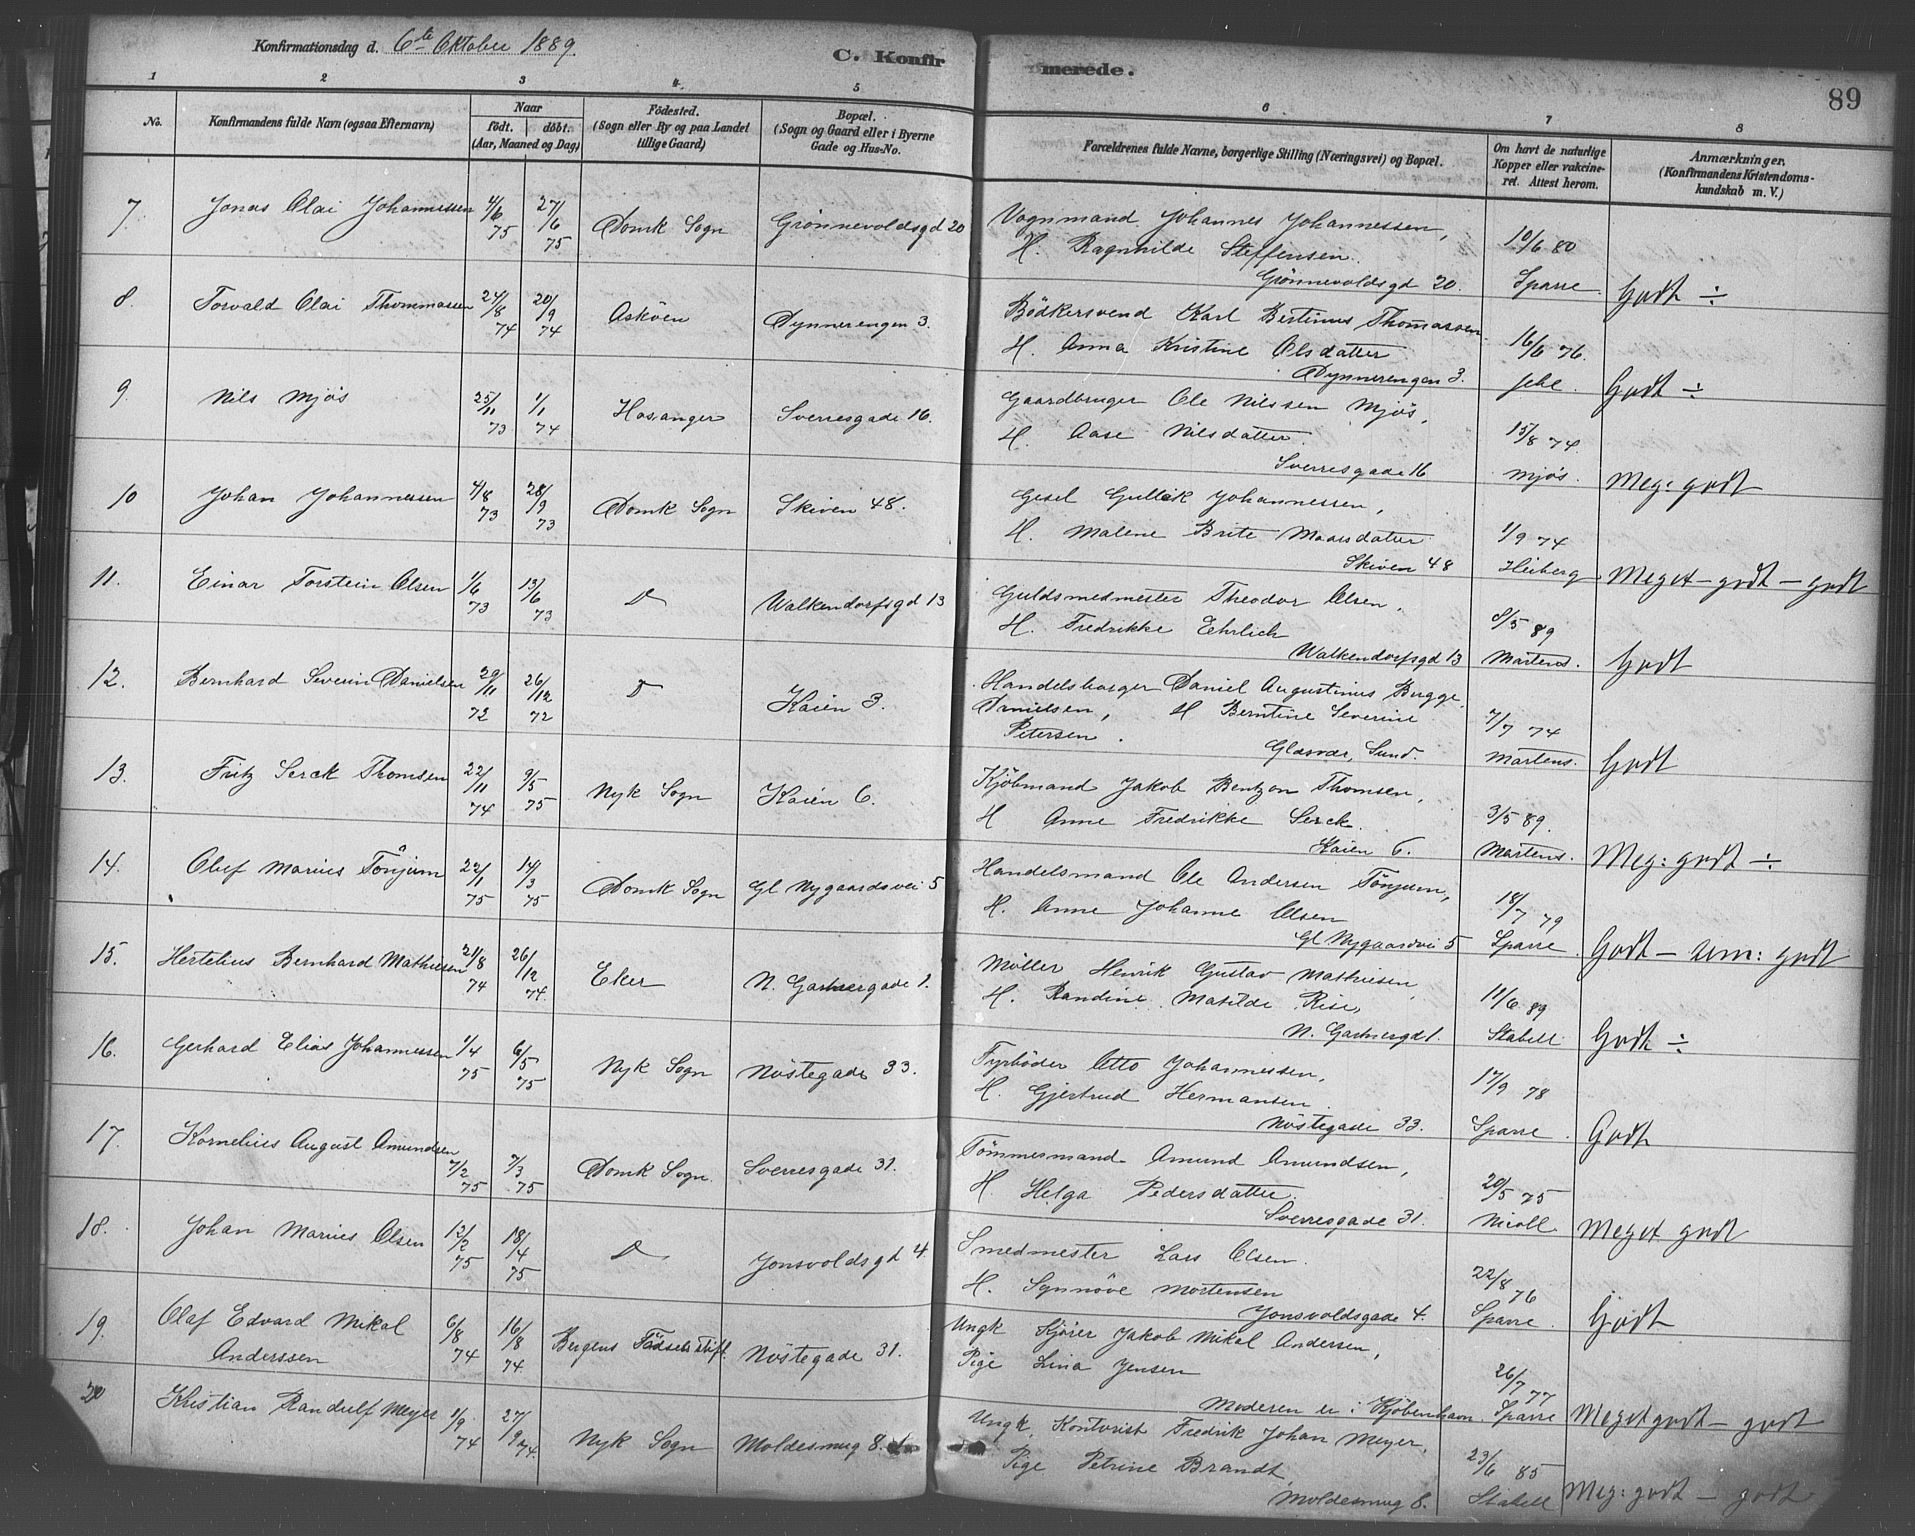 Konfirmationsdag d. 6te Oktober 1889.
C. Konfir merede.
89
1 2 3 4 5 6 7 8
No. Konfirmandens fulde Navn (ogsaa Efternavn) Naar födt. döbt. (Aar, Maaned og Dag) Födested. (Sogn eller By og paa Landet tillige Gaard) Bopæl. (Sogn og Gaard eller i Byerne Gade og Hus-No. Forældrenes fulde Navne, borgerlige Stilling (Næringsvei) og Bopæl. Om havt de naturlige Kopper eller vakcineret. Attest herom. Anmærkninger. (Konfirmandens Kristendomskundskab m. V.)
7. Jonas Olai Johannessen 4/6 75 27/6 75 Domk Sogn Grönnevoldsgd 20 Vognmand Johannes Johannessen,
H. Ragnhilde Steffensen. 10/6 80
Grönnevoldsgd 20. Sparre. Godt ÷
8. Torvald Olai Thommassen 24/8 74 20/9 74 Asköen Dynnerengen 3. Bödkersvend Karl Bertinus Thomassen
H. Anna Kristine Olsdatter 16/6 76.
Dynnerengen 3. Jehl. Godt ÷
9. Nils Mjös 25/11 73 1/1 74 Hosanger Sverresgade 16. Gaardbruger Ole Nilssen Mjös,
H. Aase Nilsdatter. 15/8 74
Sverresgade 16 Mjös. Meg: godt
10 Johan Johannessen 4/8 73 28/9 73 Domk Sogn Skiven 48. Gesel Gullik Johannessen,
H. Malene Brite Monsdatter 1/9 74
Skiven 48 Heiberg Meget – godt – godt
11. Einar Torstein Olsen 1/6 73 13/6 73 D Walkendorfsgd 13 Guldsmedmester Theodor Olsen,
H. Fredrikke Ehrlich 8/5 89
Walkendorfsgd 13 Martens. Godt
12. Bernhard Severin Danielsen 29/11 72 26/12 72 D Kaien 3. Handelsborger Daniel Augustinus Bugge
Danielsen, H Berntine Severine 7/7 74
Petersen. Glasvær, Sund. Martens. Godt
13. Fritz Serck Thomsen 22/11 74 9/5 75 Nyk Sogn Kaien 6. Kjöbmand Jakob Bentzon Thomsen,
H Anne Fredrikke Serck. 3/5 89.
Kaien 6. Martens. Meg: godt ÷
14. Oluf Marius Tönjum 22/1 75 14/3 75 Domk Sogn Gl Nygaardsvei 5 Handelsmand Ole Andersen Tönjum,
H. Anne Johanne Olsen 18/7 79
Gl Nygaardsvei 5 Sparre. Godt – um: godt
15. Hertelius Bernhard Mathiesen 21/8 74 26/12 74. Eker N. Gartnergade 1. Möller Henrik Gustav Mathiesen
H. Randine Matilde Rise, 11/6 89
N. Gartnergd 1. Stabell Godt ÷
16. Gerhard Elias Johannessen 1/4 75 6/5 75 Nyk Sogn Nöstegade 33. Fyrböder Otto Johannessen,
H. Gjertrud Hermansen 17/9 78
Nöstegade 33. Sparre. Godt
17. Kornelius August Amundsen 7/2 75 7/3 75 Domk Sogn. Sverresgade 31. Tömmermand Amund Amundsen,
H. Helga Pedersdatter. 20/5 75
Sverresgade 31. Nicoll Meget godt
18. Johan Marius Olsen 12/2 75 18/4 75 D Jonsvoldsgd 4 Smedmester Lars Olsen.
H. Synnöve Mortensen 22/8 76
Jonsvoldsgade 4. Sparre. Godt
19. Olaf Edvard Mikal Anderssen 6/8 74 16/8 74. Bergens Födselsstift. Nöstegade 31. Ungk Kjörer Jakob Mikal Andersen,
Pige Lina Jensen 26/7 77
Moderen er i Kjöbenhavn. Sparre Meget godt – godt
20 Kristian Randulf Meyer 1/9 74 27/9 74. Nyk Sogn Moldesmug 8. Ungk. Kontorist Fredrik Johan Meyer,
Pige Petrine Brandt, 23/6 85
Moldesmug 8. Stabell Meg: godt – godt